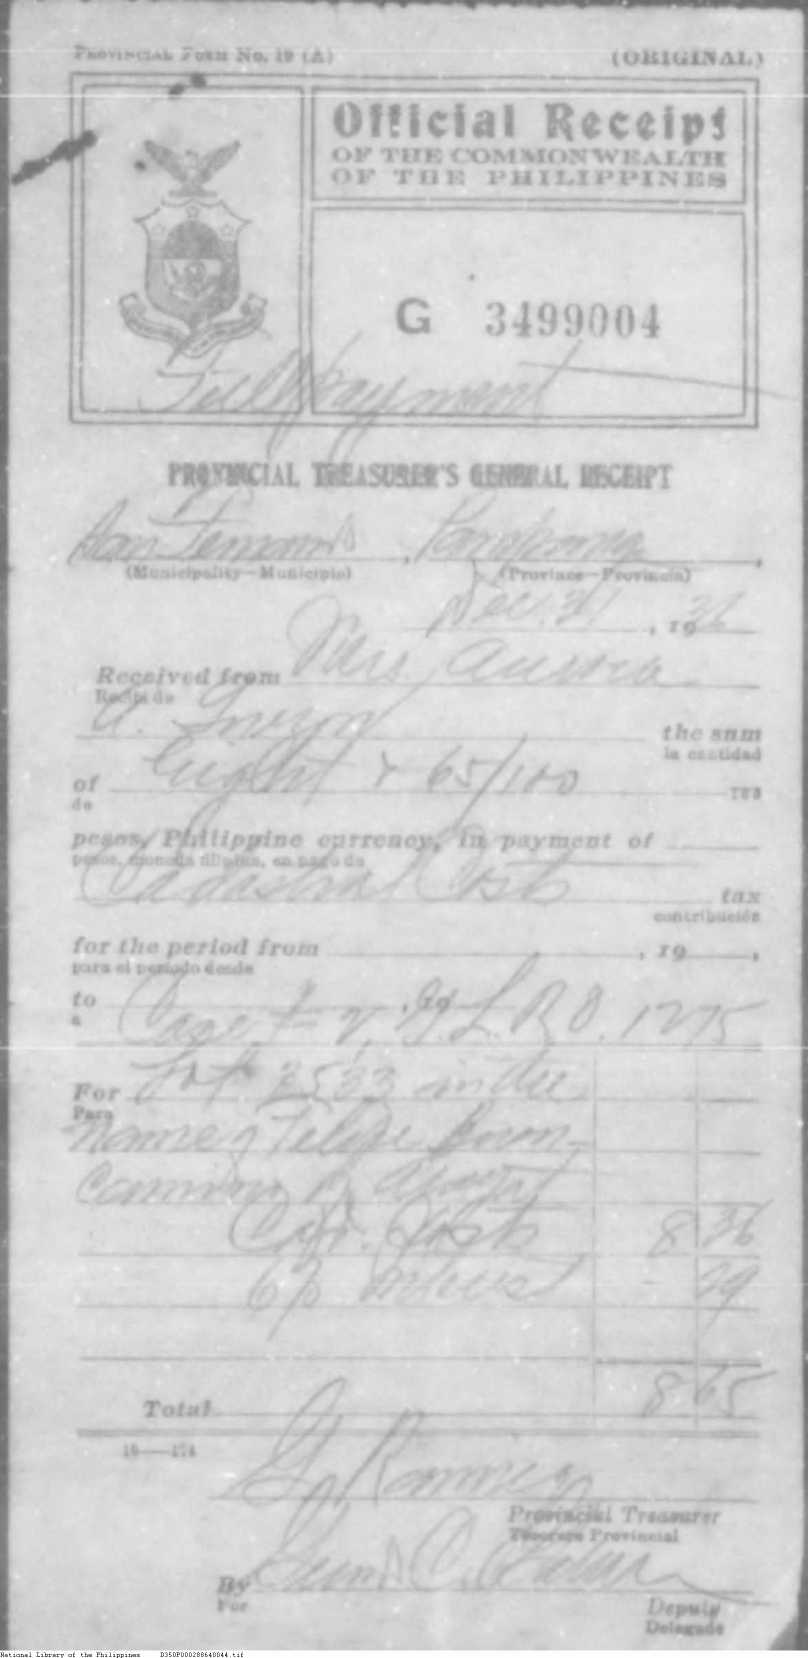 PROVINCIAL FORM No. 19 (A) (ORIGINAL)
Official Receipt
OF THE COMMONWEALTH
OF THE PHILIPPINES
G 3499004
Full payment
PROVINCIAL TREASURER'S GENERAL RECEIPT
San Fernando, Pampanga,
(Municipality—Municipio) (Province—Provincia)
Dec. 31, 1936
Received from Mrs. Aurora
Recibí de
A. the sum
la cantidad
of Eight & 65/100
de
pesos, Philippine currency, in payment of
pesos, moneda filipina, en pago de
Cadastral Costs tax
contribución
for the period from , 19 ,
para el período desde
to , 19
a
Case # 2, G.L.R.O. 1275
For Lot 2533 in the
Para
name of Felipe Buen-
camino of
Cad. Costs 8 36
6% interest - 29
Total 8 65
19—174
Provincial Treasurer
Tesorero Provincial
By
Por
Deputy
Delegado
National Library of the Philippines D350P000288640044.tif